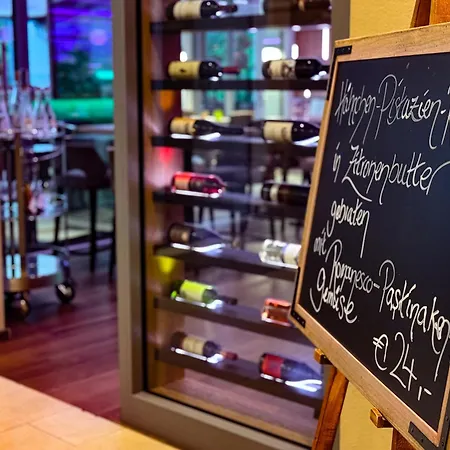 Hähnchen-Pistazien-
in Zitronenbutter
gebraten
mit Romanesco-Pastinaken
gemüse
€ 24,-